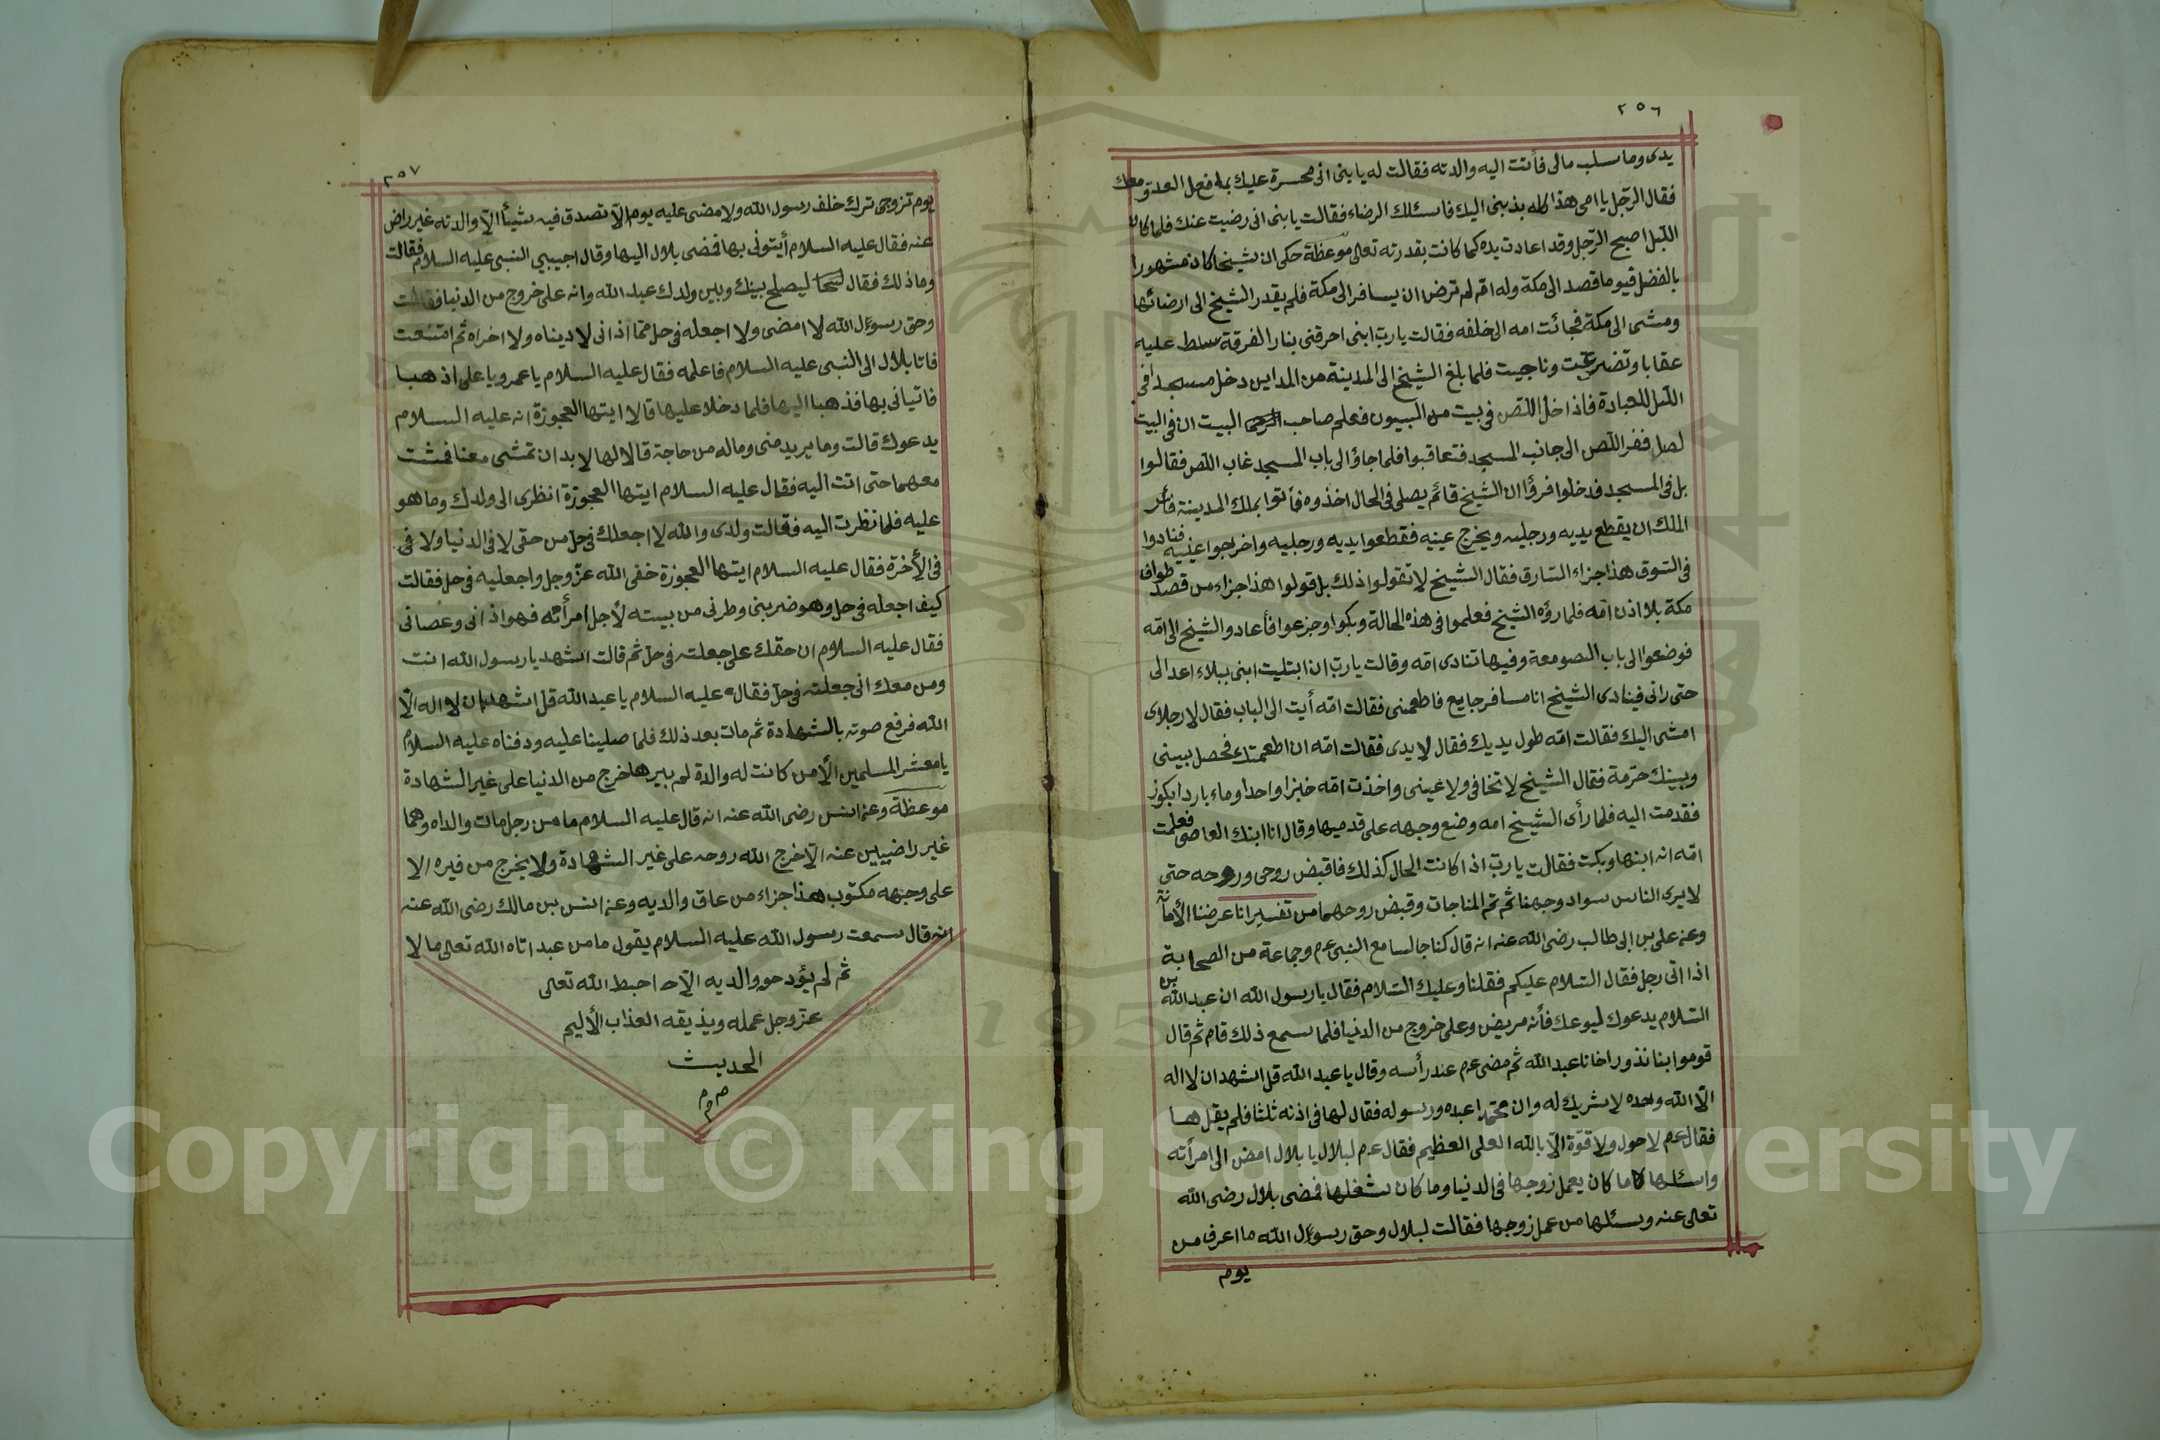 ٢٥٦
يدى وما سلب مالى فأتت اليه والدته فقالت له يا بنى انى محسرة عليك بما فعل العدو معك
فقال الرجل يا امى هذا كله بذنبى اليك فاسئلك الرضاء فقالت يا بنى انى رضيت عنك فلما كان
الليل اصبح الرجل وقد اعادت يده كما كانت بقدرته تعالى موعظة حكى ان شيخا كان مشهورا
بالفضل فيوما قصد الى مكة وله ام لم ترض ان يسافر الى مكة فلم يقدر الشيخ الى ارضائها
ومشى الى مكة فجائت امه الى خلفه فقالت يا رب ابنى احرقنى بنار الفرقة سلط عليه
عقابا وتضرعت وناجيت فلما بلغ الشيخ الى المدينة من المداين دخل مسجدا فى
الليل للعبادة فاذا دخل اللص فى بيت من البيوت فعلم صاحب البيت ان فى البيت
لصل ففر اللص الى جانب المسجد فتعاقبوا فلما جاؤ الى باب المسجد غاب اللص فقالوا
بل فى المسجد فدخلوا فرؤا ان الشيخ قائم يصلى فى الحال اخذوه فأتوا بملك المدينة فأمر
الملك ان يقطع يديه ورجليه ويخرج عينيه فقطعوا يديه ورجليه واخرجوا عينيه فنادوا
فى السوق هذا جزاء السارق فقال الشيخ لا تقولوا ذلك بل قولوا هذا جزاء من قصد طواف
مكة بلا اذن امه فلما رؤه الشيخ فعلموا فى هذه الحالة وبكوا وجزعوا فأعادو الشيخ الى امه
فوضعوا الى باب الصومعة وفيها تنادى امه وقالت يا رب ان ابتليت ابنى ببلاء اعد الى
حتى رانى فينادى الشيخ انا مسافر جايع فاطعمنى فقالت امه أيت الى الباب فقال لا رجلاى
امشى اليك فقالت امه طول يديك فقال لا يدى فقالت امه ان اطعمتك فحصل بينى
وبينك حرمة فقال الشيخ لا تخافى ولا عينى واخذت امه خبزا واحدا وماء باردا بكوز
فقدمت اليه فلما رأى الشيخ امه وضع وجهه على قدميها وقال انا ابنك العاصى فعلمت
امه انه ابنها وبكت فقالت يا رب اذا كانت الحال كذلك فاقبض روحى وروحه حتى
لا يرى الناس سواد وجهنا ثم تم المناجات وقبض روحهما من تفسير انا عرضنا الأمانة
وعن على بن ابى طالب رضى الله عنه انه قال كنا جالسا مع النبى عم وجماعة من الصحابة
اذا اتى رجل فقال السلام عليكم فقلنا وعليك السلام فقال يا رسول الله ان عبد الله بن
السلام يدعوك ليوعك فأنه مريض وعلى خروج من الدنيا فلما سمع ذلك قام ثم قال
قوموا بنا نذور اخانا عبد الله ثم مضى عم عند رأسه وقال يا عبد الله قل اشهد ان لا اله
الا الله وحده لا شريك له وان محمدا عبده ورسوله فقال لها فى اذنه ثلثا فلم يقل ها
فقال عم لا حول ولا قوة الا بالله العلى العظيم فقال عم لبلال يا بلال امض الى امرأته
واسئلها ما كان يعمل زوجها فى الدنيا وما كان شغلها فمضى بلال رضى الله
تعالى عنه وسئلها من عمل زوجها فقالت لبلال وحق رسول الله ما اعرف من
يوم
٢٥٧
يوم تزوجى ترك خلف رسول الله ولا مضى عليه يوم الا تصدق فيه شيأ الا والدته غير راض
عنه فقال عليه السلام أيتونى بها فمضى بلال اليها وقال اجيبي النبى عليه السلام فقالت
وما ذلك فقال ليصلح بينك وبين ولدك عبد الله وانه على خروج من الدنيا فقالت
وحق رسول الله لا امضى ولا اجعله فى حل مما اذانى لا ديناه ولا اخراه ثم امتنعت
فاتا بلال الى النبى عليه السلام فاعلمه فقال عليه السلام يا عمر ويا على اذهبا
فاتيانى بها فذهبا اليها فلما دخلا عليها قالا ايتها العجوزة انه عليه السلام
يدعوك قالت وما يريد منى وماله من حاجة قالا لها لا بد ان تمشى معنا فمشت
معهما حتى اتت اليه فقال عليه السلام ايتها العجوزة انظرى الى ولدك وما هو
عليه فلما نظرت اليه وقالت ولدى والله لا اجعلك فى حل من حقى لا فى الدنيا ولا فى
فى الأخرة فقال عليه السلام ايتها العجوزة خفى الله عز وجل واجعليه فى حل فقالت
كيف اجعله فى حل وهو ضربنى وطرنى من بيته لأجل امرأته فهو اذانى وعصانى
فقال عليه السلام ان حقك على جعلته فى حل ثم قالت اشهد يا رسول الله انت
ومن معك انى جعلته فى حل فقال عليه السلام يا عبد الله قل اشهد ان لا اله الا
الله فرفع صوته بالشهادة ثم مات بعد ذلك فلما صلينا عليه ودفناه عليه السلام
يا معشر المسلمين الا من كانت له والدة لم يبرها خرج من الدنيا على غير الشهادة
موعظة وعن انس رضى الله عنه انه قال عليه السلام ما من رجل مات والداه وهما
غير راضيين عنه الا خرج الله روحه على غير الشهادة ولا يخرج من قبره الا
على وجهه مكتوب هذا جزاء من عاق والديه وعن انس بن مالك رضى الله عنه
انه قال سمعت رسول الله عليه السلام يقول ما من عبد اتاه الله تعالى مالا
ثم لم يؤد حق والديه الا احبط الله تعالى
عز وجل عمله ويذيقه العذاب الأليم
الحديث
م م م
Copyright © King Saud University
195